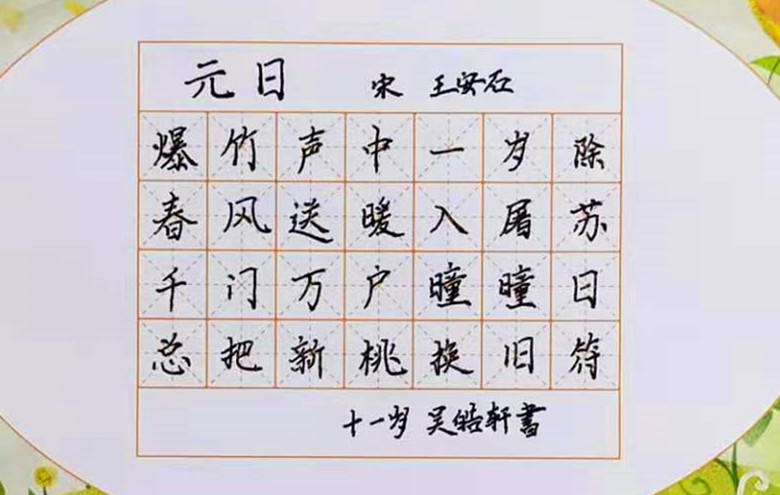 元日 宋 王安石
爆竹声中一岁除
春风送暖入屠苏
千门万户曈曈日
总把新桃换旧符
十一岁 吴皓轩书